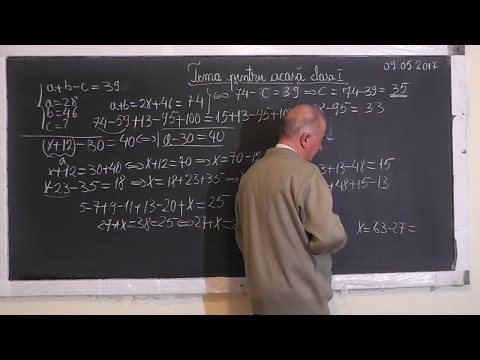 09.05.2017
Tema pentru acasă clasa I
a+b-c=39
a=28
b=46
c=?
a+b=28+46=74
74-C=39⇔C=74-39=35
74-59+13-95+100=15+13-95+100
8-95=33
(x+12)-30=40⇔a-30=40
a
x+12=30+40⇔x+12=70⇒x=70-12
3+13-48=15
x-23-35=18⇒x=18+23+35⇒x
+48+15-13
5-7+9-11+13-20+x=25
27+x-38=25⇔27+x-
x=63-27=